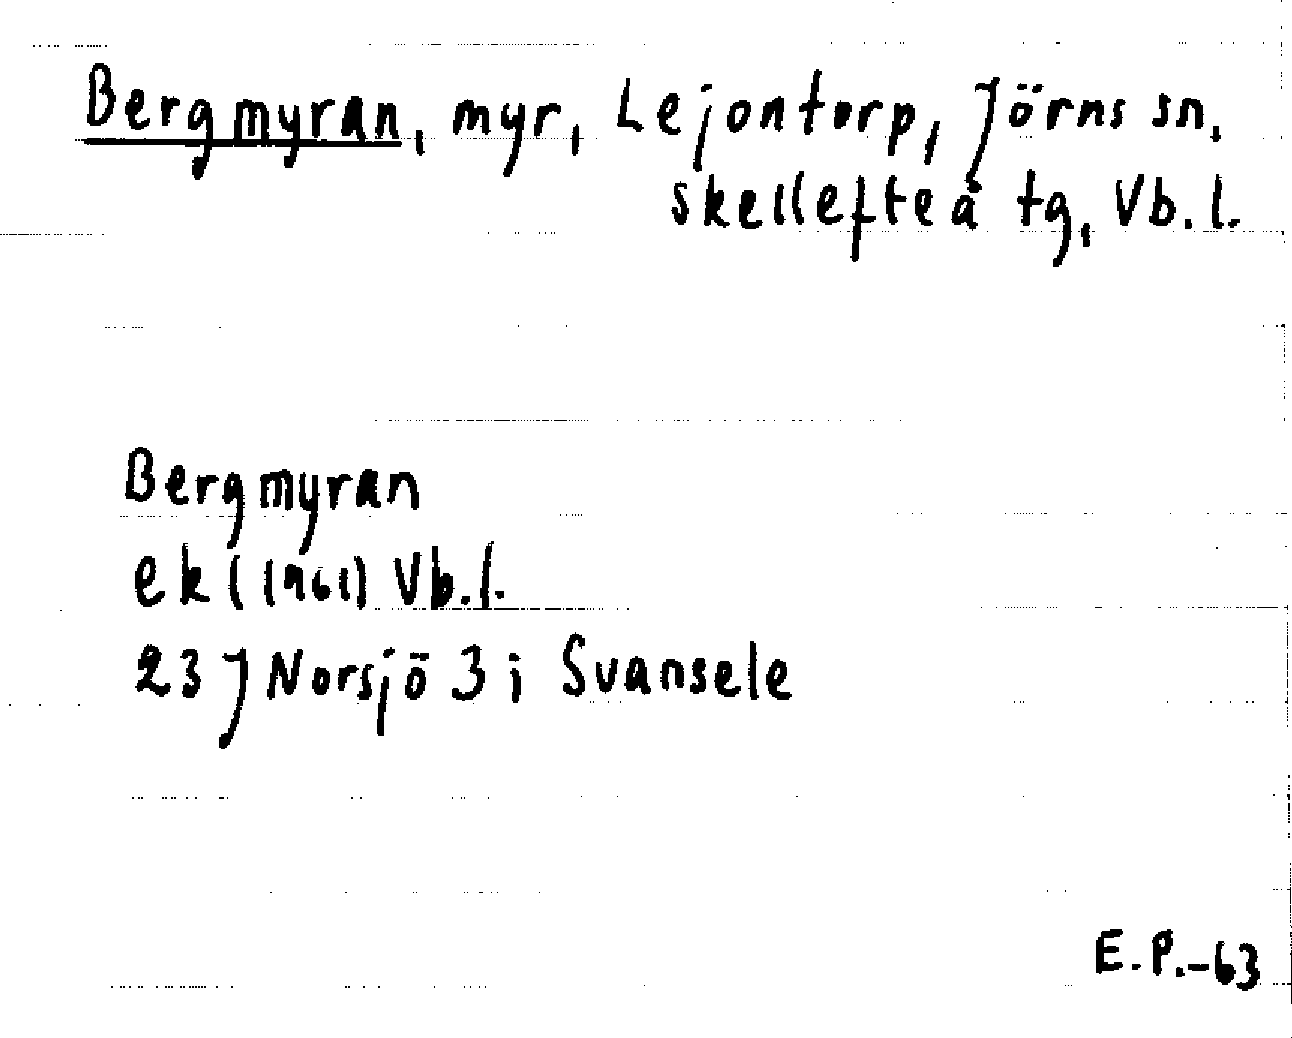 Bergmyran, myr, Lejontorp, Jörns sn,
Skellefteå tg, Vb.l.
Bergmyran
ek (1961) Vb.l.
23 J Norsjö 3 i Svansele
E.P.-63